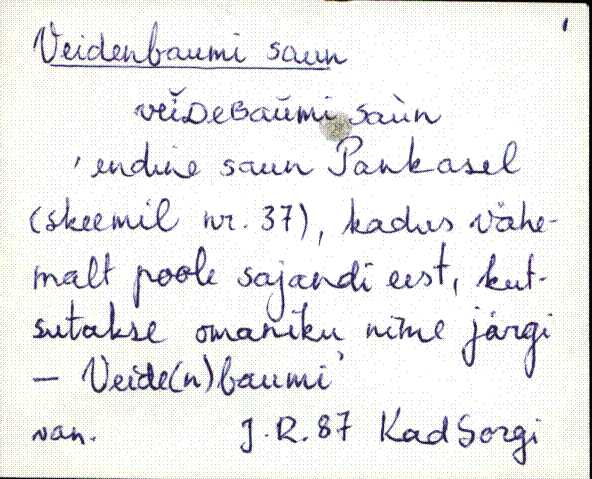 Veidenbaumi saun
vei͔DeBaŭmi saùn
'endine saun Pankasel
(skeemil nr. 37), kadus vähe-
malt poole sajandi eest, kut-
sutakse omaniku nime järgi
– Veide(n)baumi'
van. J.R. 87 KadSorgi